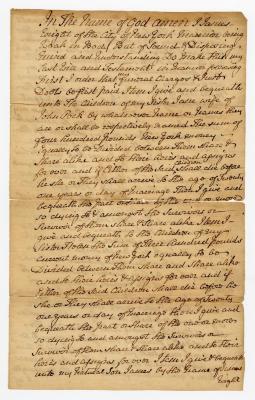 In The Name of God amen I James
Enight of the City of New York Mariner being
Weak in Body But of Sound & Disposing
mind and understanding Do make this my
Last Will and Testament in manner following
First I order that my funeral Charges & Just
Debts be first paid Item I give and bequeath
unto The Children of my Sister Jane wife of
John York by whatsoever name or names they
are or shall be respectively named The sum of
four hundred pounds New York money
Equally to be Divided between them Share &
Share alike and to their heirs and assigns
for ever and if Either of the said Children Shall die before
he she or They Shall arrive to the age of twenty
one years or day of marriage then I give and
bequeath the part or Share of the one or more
so dying to & amongst the Survivors or
Survivor of them Share & Share alike Item I
give and bequeath to the Children of my
Sister the Sum of Three hundred pounds
current money of New york equally to be
Divided between them Share and Share alike
and to their heirs & assigns for ever and if
Either of the said Children Shall die before he
she or They Shall arrive to the Age of twenty
one years or day of marriage then I give and
bequeath the part or Share of the one or more
so dying to and amongst the Survivors or
Survivor of them Share & Share alike and to their
heirs and assigns for ever Item I give & bequeath
unto my Natural Son James by the Name of James
Enight